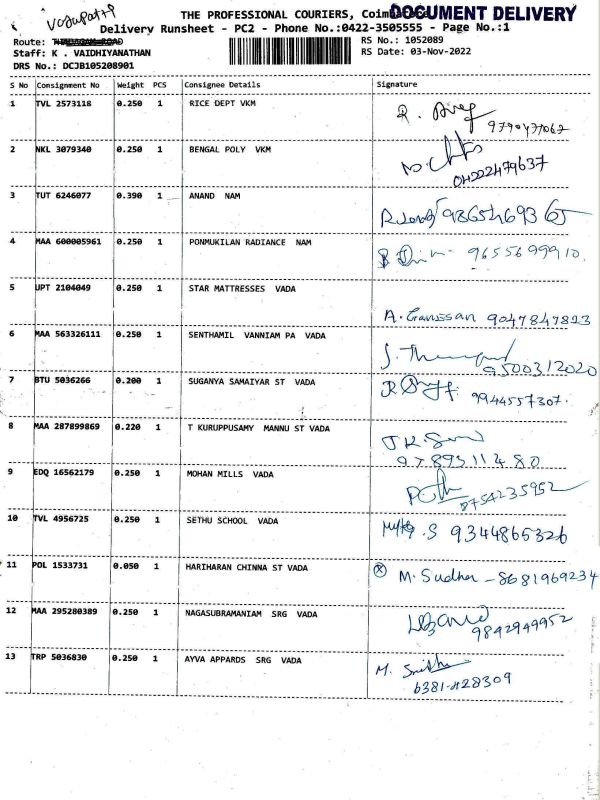 THE PROFESSIONAL COURIERS, Coimbatore
DOCUMENT DELIVERY
Delivery Runsheet - PC2 - Phone No.:0422-3505555 - Page No.:1
Route: RS No.: 1052089
Staff: K . VAIDHIYANATHAN RS Date: 03-Nov-2022
DRS No.: DCJB105208901
S No Consignment No Weight PCS Consignee Details Signature
1 TVL 2573118 0.250 1 RICE DEPT VKM
2 NKL 3079340 0.250 1 BENGAL POLY VKM
3 TUT 6246077 0.390 1 ANAND NAM
4 MAA 600005961 0.250 1 PONMUKILAN RADIANCE NAM
9655699910.
5 UPT 2104049 0.250 1 STAR MATTRESSES VADA
A. Ganessan 9047847813
6 MAA 563326111 0.250 1 SENTHAMIL VANNIAM PA VADA
9500312020
7 BTU 5036266 0.200 1 SUGANYA SAMAIYAR ST VADA
9944557307.
8 MAA 287899869 0.220 1 T KURUPPUSAMY MANNU ST VADA
9789311480
9 EDQ 16562179 0.250 1 MOHAN MILLS VADA
8754235952
10 TVL 4956725 0.250 1 SETHU SCHOOL VADA
9344865326
11 POL 1533731 0.050 1 HARIHARAN CHINNA ST VADA
M. Sudha - 8681969234
12 MAA 295280389 0.250 1 NAGASUBRAMANIAM SRG VADA
9842949952
13 TRP 5036830 0.250 1 AYVA APPARDS SRG VADA